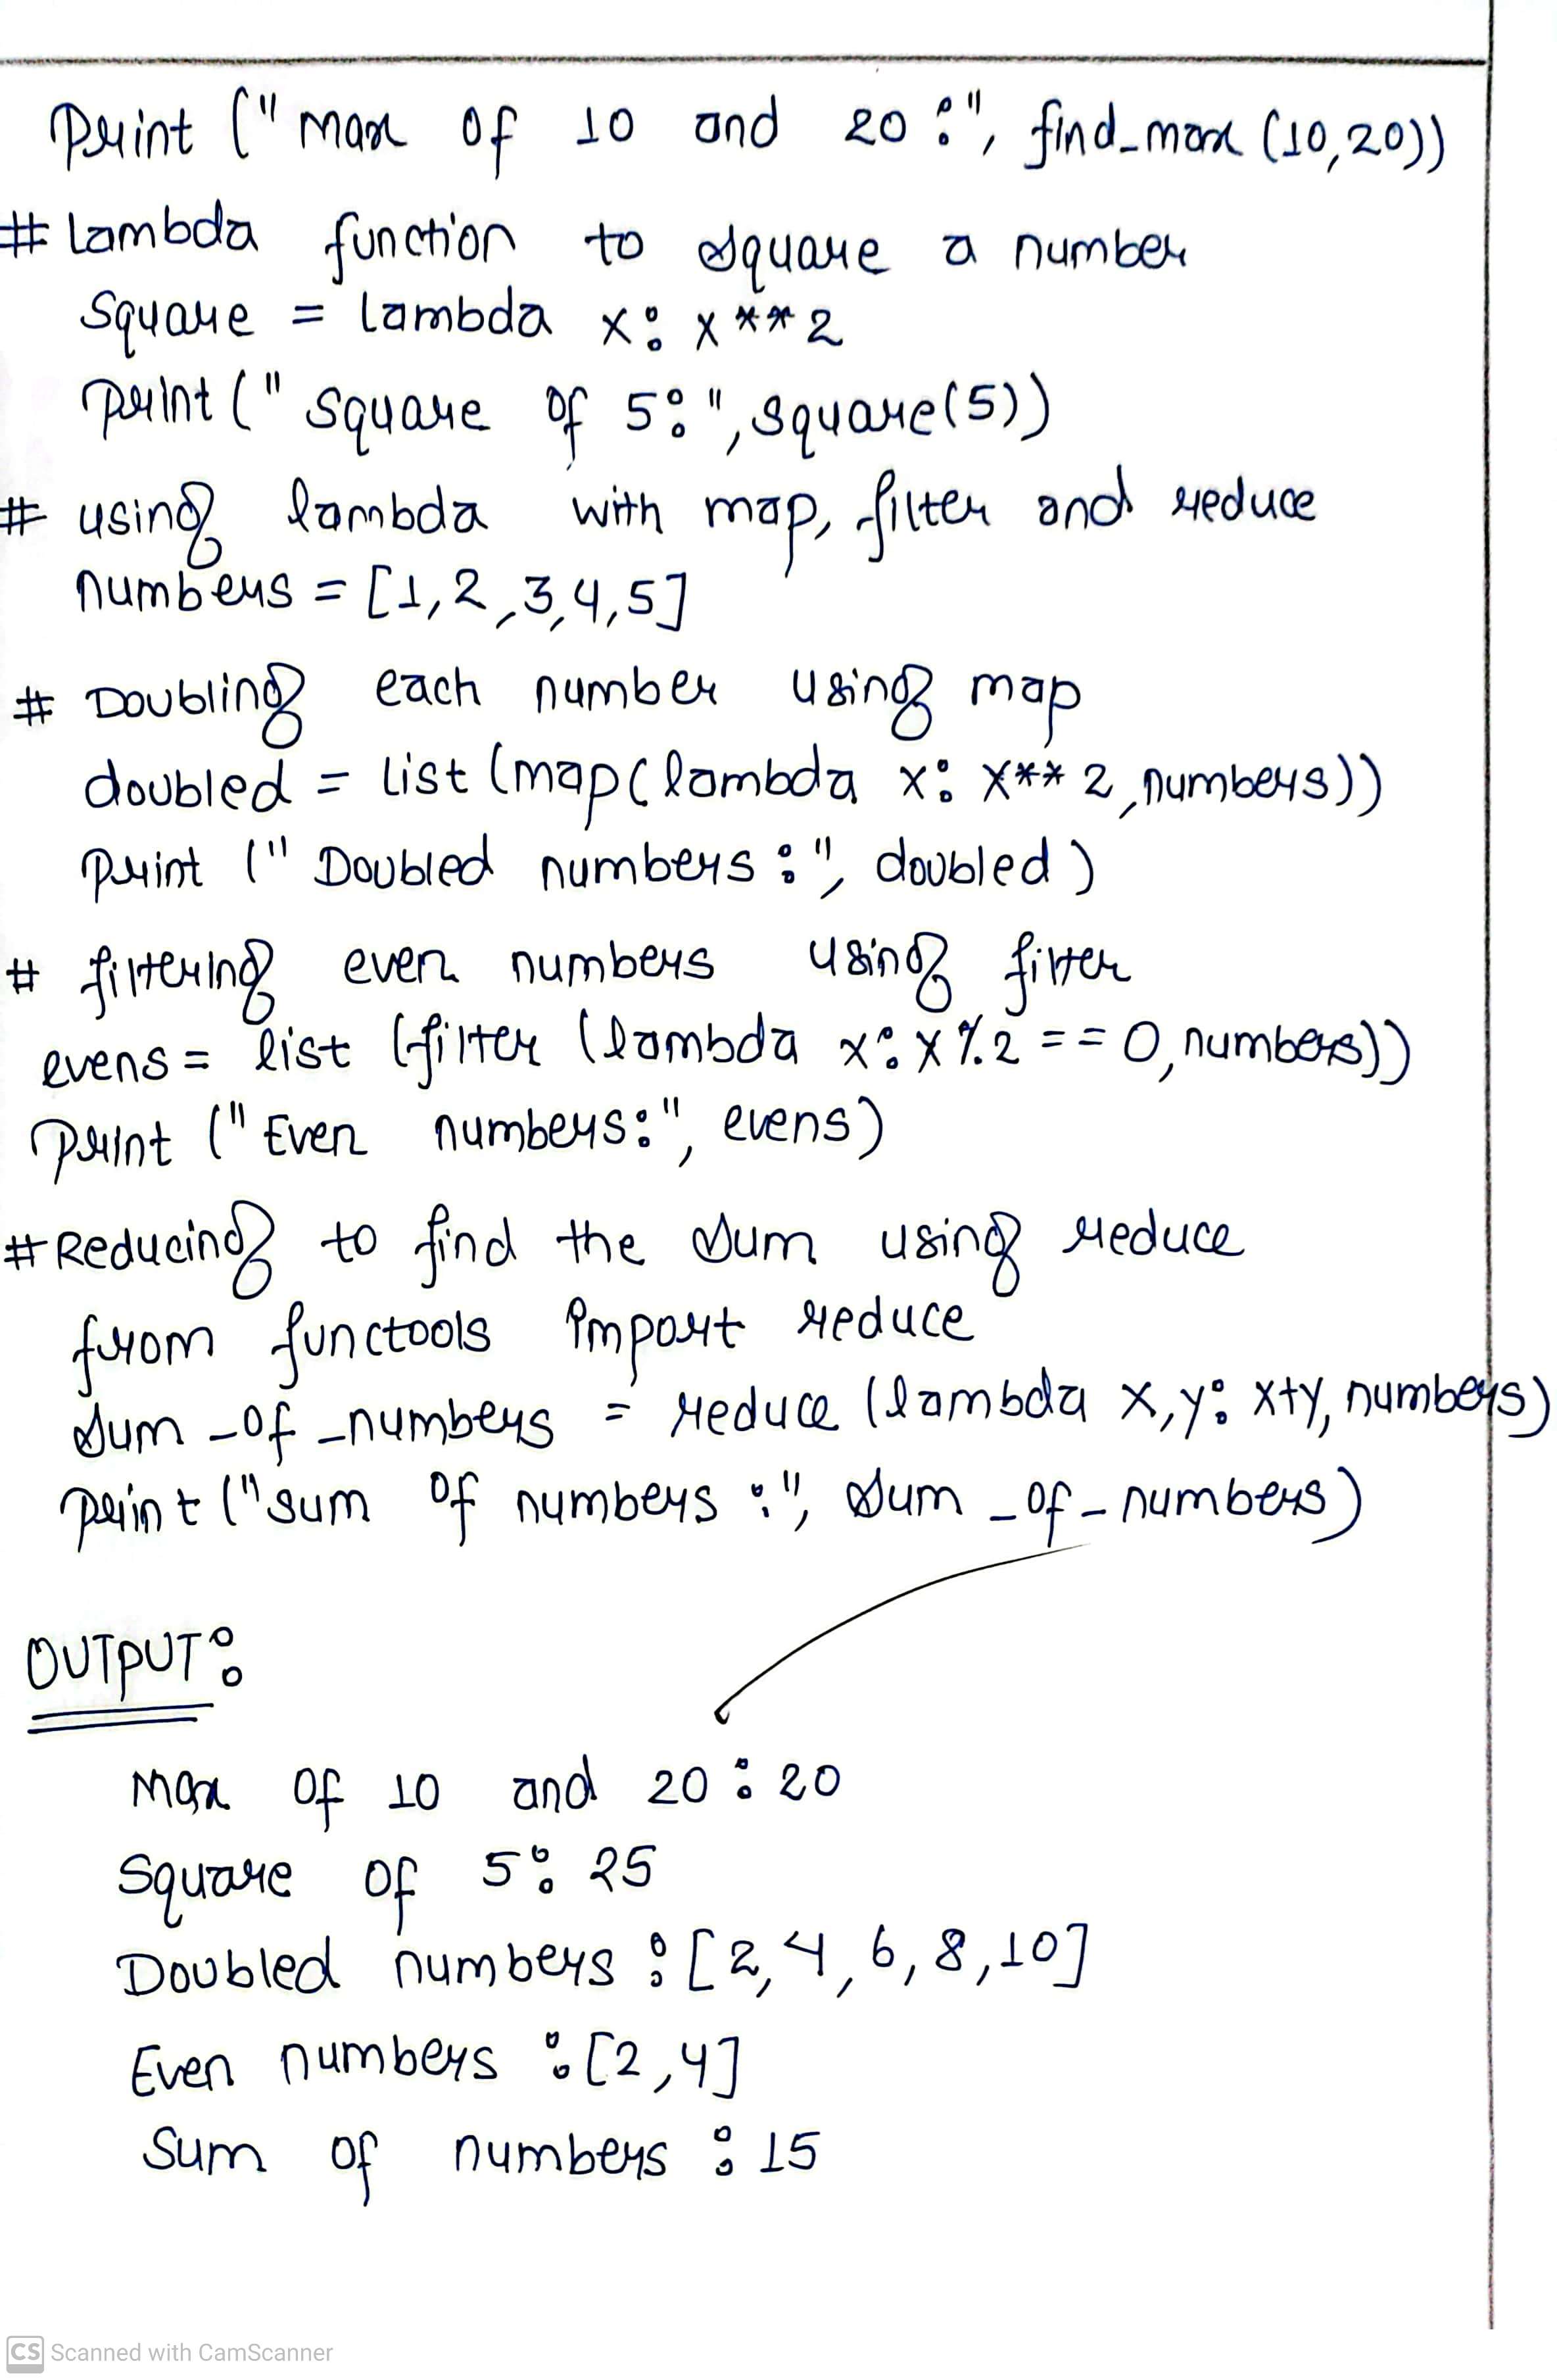 print ("max of 10 and 20 :", find_max (10,20))
# lambda function to square a number
square = lambda x: x **2
print (" square of 5: ", square(5))
# using lambda with map, filter and reduce
numbers = [1,2,3,4,5]
# Doubling each number using map
doubled = list (map( lambda x: x** 2, numbers))
print (" Doubled numbers : ", doubled )
# filtering even numbers using filter
evens = list (filter (lambda x: x % 2 == 0, numbers))
print (" Even numbers: ", evens)
# Reducing to find the sum using reduce
from functools import reduce
sum _of _numbers = reduce (lambda x,y: x+y, numbers)
print ("sum of numbers :", sum _of_numbers)
OUTPUT:
max of 10 and 20 : 20
Square of 5: 25
Doubled numbers : [2,4,6,8,10]
Even numbers : [2,4]
Sum of numbers : 15
CS Scanned with CamScanner